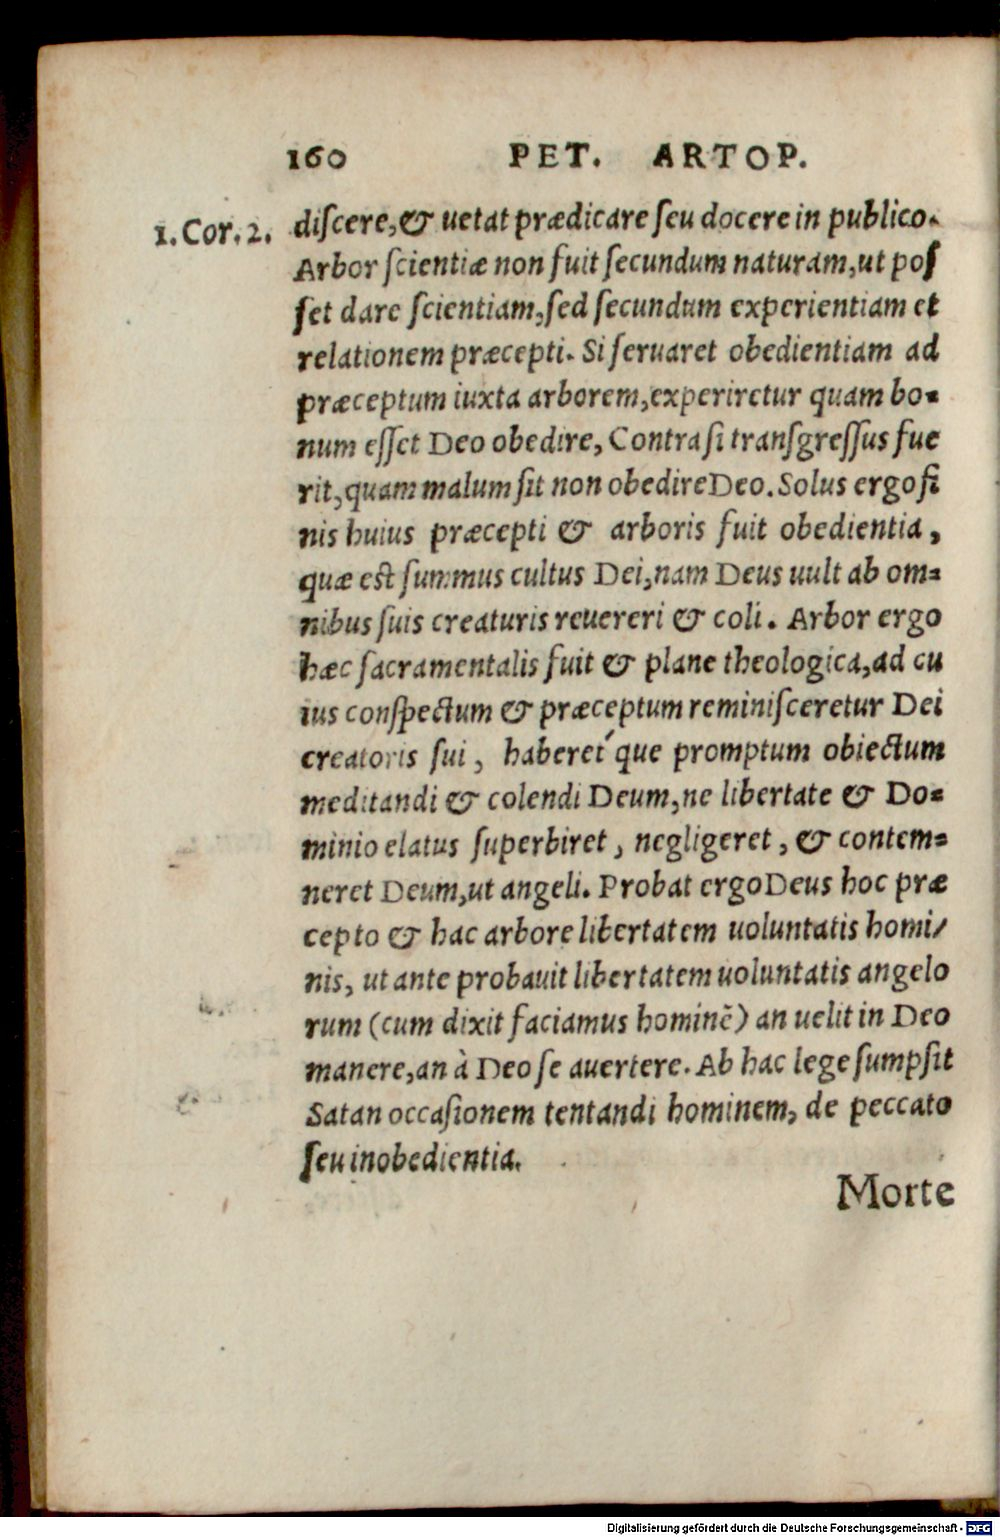 160 PET. ARTOP.
1. Cor. 2. diſcere,& uetat prædicare ſeu docere in publico.
Arbor ſcientiæ non fuit ſecundum naturam,ut poſ
ſet dare ſcientiam,ſed ſecundum experientiam et
relationem præcepti. Si ſeruaret obedientiam ad
præceptum iuxta arborem,experiretur quam bo-
num eſſet Deo obedire, Contra ſi tranſgreſſus fue
rit,quam malum ſit non obedire Deo. Solus ergo fi
nis huius præcepti & arboris fuit obedientia,
quæ est ſummus cultus Dei,nam Deus uult ab om-
nibus ſuis creaturis reuereri & coli. Arbor ergo
hæc ſacramentalis fuit & plane theologica,ad cu
ius conſpectum & præceptum reminiſceretur Dei
creatoris ſui, haberet́que promptum obiectum
meditandi & colendi Deum,ne libertate & Do-
minio elatus ſuperbiret, negligeret, & contem-
neret Deum,ut angeli. Probat ergo Deus hoc præ
cepto & hac arbore libertatem uoluntatis homi/
nis, ut ante probauit libertatem uoluntatis angelo
rum (cum dixit faciamus hominē) an uelit in Deo
manere,an à Deo ſe auertere. Ab hac lege ſumpſit
Satan occaſionem tentandi hominem, de peccato
ſeu inobedientia.
Morte
Digitalisierung gefördert durch die Deutsche Forschungsgemeinschaft - DFG